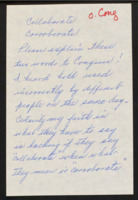 Collaborate
O. Cong
Corroborate
Please explain these
two words to Congress!
I heard both used
incorrectly by different
people on the same day.
Certainly my faith in
what they have to say
is lacking if they say
"collaborate" when what
they mean is corroborate"